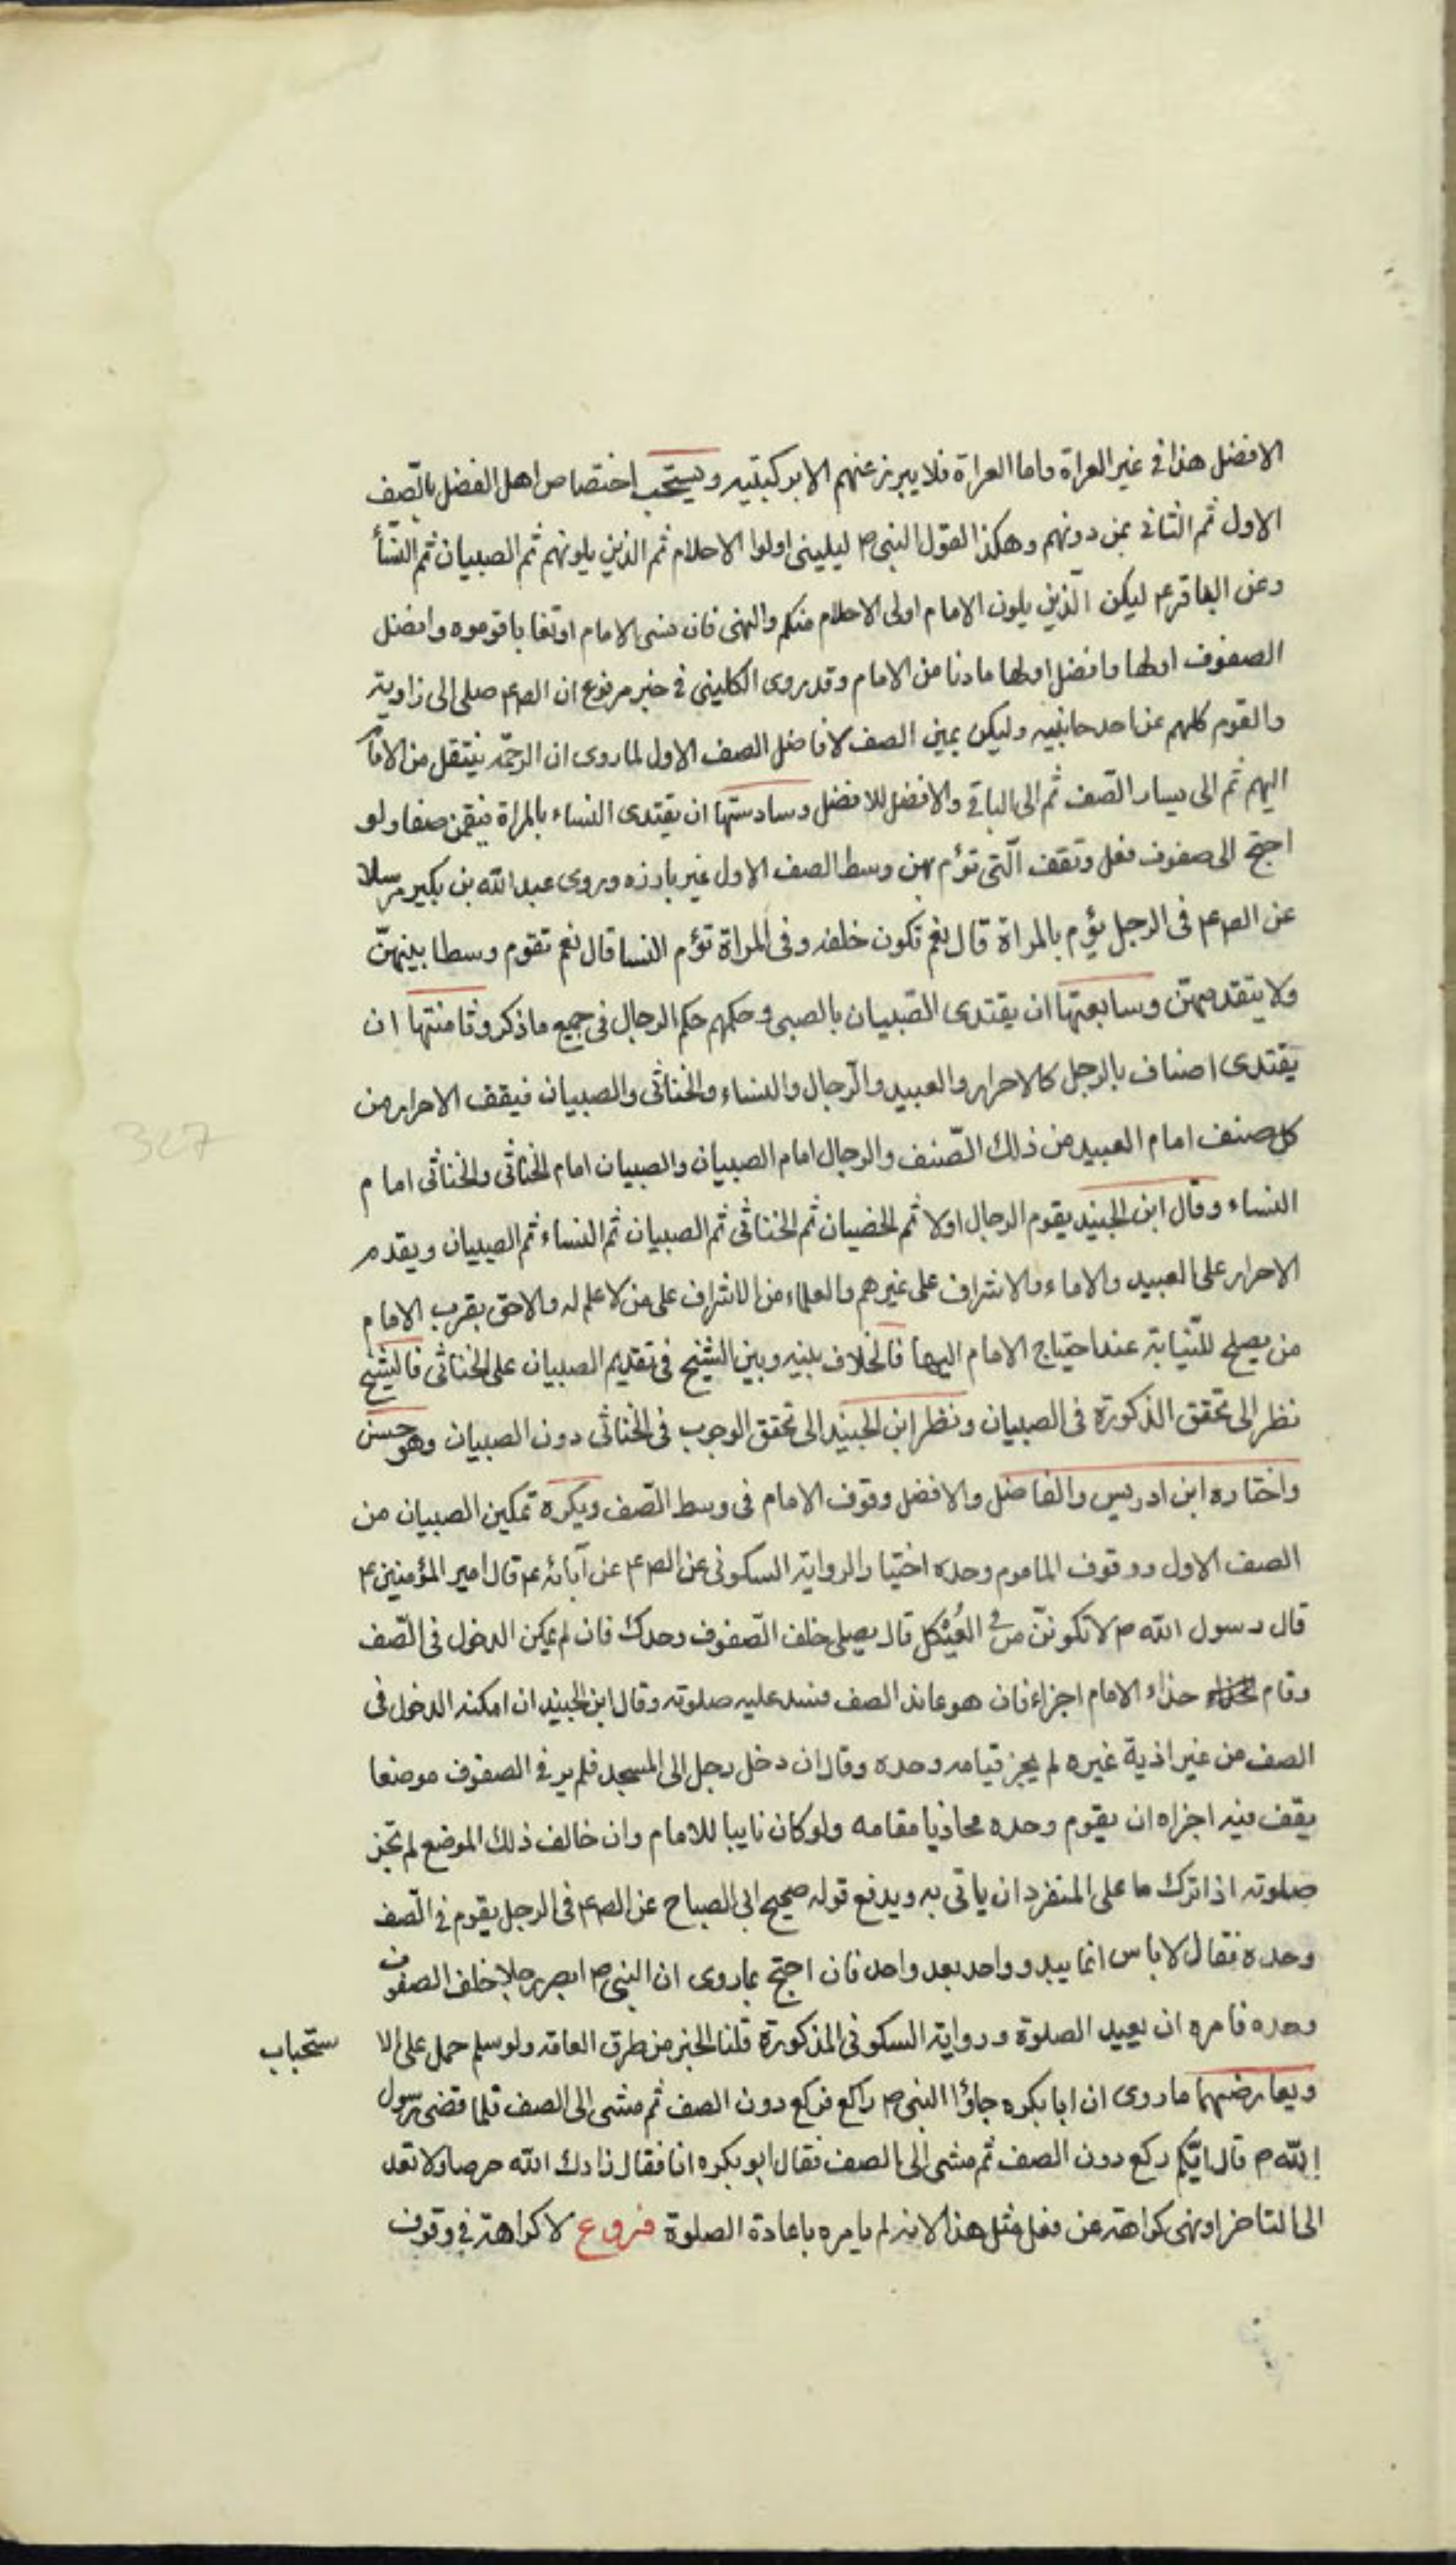 الافضل هذا في غير العراة واما العراة فلا يبرز عنهم الا بركبتيه ويستحب اختصاص اهل الفضل بالصّف
الاول ثم الثاني بمن دونهم وهكذا لقول النبي ص ليليني اولوا الاحلام ثم الذين يلونهم ثم الصبيان ثم النسأ
وعن الباقر ع ليكن الّذين يلون الامام اولى الاحلام منكم والنهى فان نسى الامام او تعايا قوموه وافضل
الصفوف اولها وافضل اولها ما دنا من الامام وقد روى الكليني في خبر مرفوع ان الص ع صلى الى زاوية
والقوم كلهم عن احد جانبيه وليكن يمين الصف لافاضل الصف الاول لما روى ان الرحمة ينتقل من الامام
اليهم ثم الى يسار الصّف ثم الى الباقي والافضل للافضل وسادستها ان يقتدى النساء بالمراة فيقمن صفا ولو
احتج الى صفوف فعل وتقف الّتي تؤم بهن وسط الصف الاول غير بارزه وروى عبد الله بن بكير مرسلا
عن الص ع في الرجل يؤم بالمراة قال نعم تكون خلفه وفي المراة تؤم النسا قال نعم تقوم وسطا بينهنّ
ولا يتقدمهنّ وسابعتها ان يقتدى الصّبيان بالصبى وحكمهم حكم الرجال في جميع ما ذكر وثامنتها ان
يقتدى اصناف بالرجل كالاحرار والعبيد والرّجال والنساء والخناثى والصبيان فيقف الاحرار من
كل صنف امام العبيد من ذلك الصّنف والرجال امام الصبيان والصبيان امام الخناثى والخناثى امام
النساء وقال ابن الجنيد يقوم الرجال اولا ثم الخصيان ثم الخناثى ثم الصبيان ثم النساء ثم الصبيان ويقدم
الاحرار على العبيد والاماء والاشراف على غيرهم والعلماء من الاشراف على من لا علم له والاحق بقرب الامام
من يصلح للنّيابة عند احتياج الامام اليها فالخلاف بينه وبين الشيخ في تقديم الصبيان على الخناثى فالشيخ
نظر الى تحقق الذكورة في الصبيان ونظر ابن الجنيد الى تحقق الوجوب في الخناثى دون الصبيان وهو حسن
واختاره ابن ادريس والفاضل والافضل وقوف الامام في وسط الصّف ويكره تمكين الصبيان من
الصف الاول ووقوف الماموم وحده اختيارا لرواية السكونى عن الص ع عن آبائه ع قال امير المؤمنين ع
قال رسول الله ص لا تكوننّ في العُيْكل قال يصلى خلف الصّفوف وحدك فان لم يمكن الدخول في الصّف
وقام حذاء الامام اجزاء فان هو عاند الصف فسد عليه صلوته وقال ابن الجنيد ان امكنه الدخول في
الصف من غير اذية غيره لم يجز قيامه وحده وقال ان دخل رجل الى المسجد فلم ير في الصفوف موضعا
يقف فيه اجزاه ان يقوم وحده محاذيا مقامه ولو كان نايبا للامام وان خالف ذلك الموضع لم تجز
صلوته اذا ترك ما على المنفرد ان ياتى به ويدفع قوله صحيح ابى الصباح عن الص ع في الرجل يقوم في الصّف
وحده فقال لا باس انما يبدو واحد بعد واحد فان احتج بما روى ان النبي ص ابصر رجلا خلف الصفوف
وحده فامره ان يعيد الصلوة ورواية السكونى المذكورة قلنا الخبر من طرق العامّه ولو سلم حمل على الا ستحباب
ويعارضهما ما روى ان ابا بكره جاؤ النبي ص راكع فركع دون الصف ثم مشى الى الصف فلما قضى رسول
الله ص قال ايّكم ركع دون الصف ثم مشى الى الصف فقال ابو بكره انا فقال زادك الله حرصا ولا تعد
الى التاخر او نهى كراهة عن فعل مثل هذا لانه لم يامره باعادة الصلوة فروع لا كراهة في وقوف
327